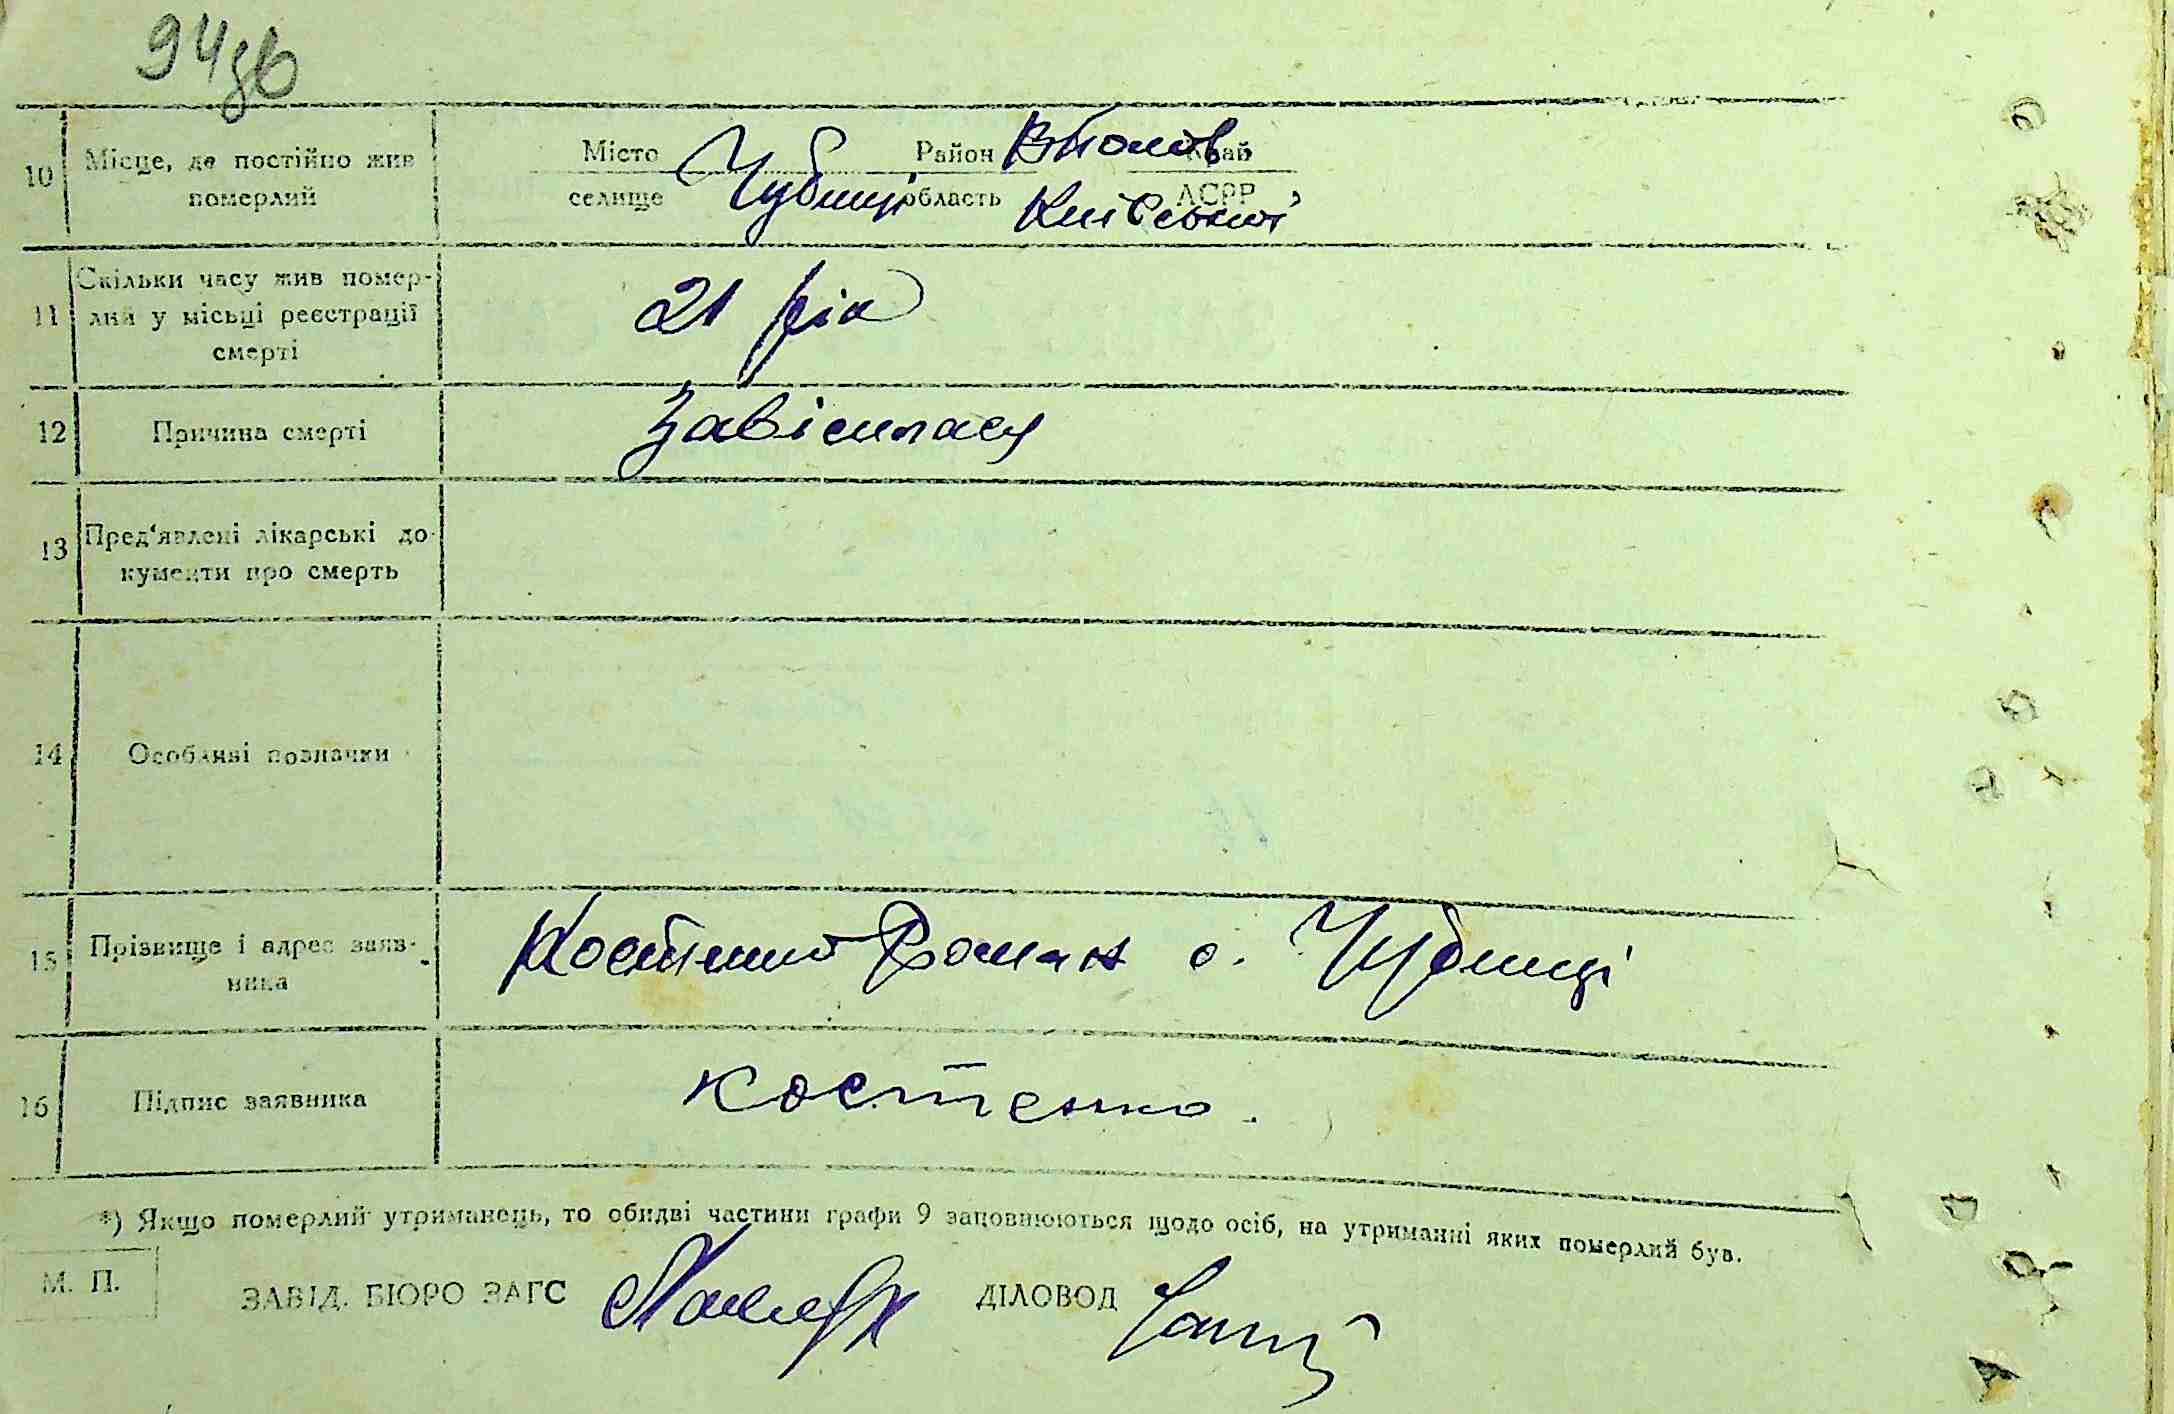 94зв
10 Місце, де постійно жив Місто Чубинці Район
померлий селище область Київської АСРР
11 Скільки часу жив помер-
лий у місці реєстрації 21 рік
смерті
12 Причина смерті Завісилася
13 Пред'явлені лікарські до-
кументи про смерть
14 Особливі позначки
15 Прізвище і адрес заяв- Роман с. Чубинці
ника
16 Підпис заявника Костенко.
*) Якщо померлий утриманець, то обидві частини графи 9 заповнюються щодо осіб, на утриманні яких померлий був.
М. П.
ЗАВІД. БЮРО ЗАГС ДІЛОВОД